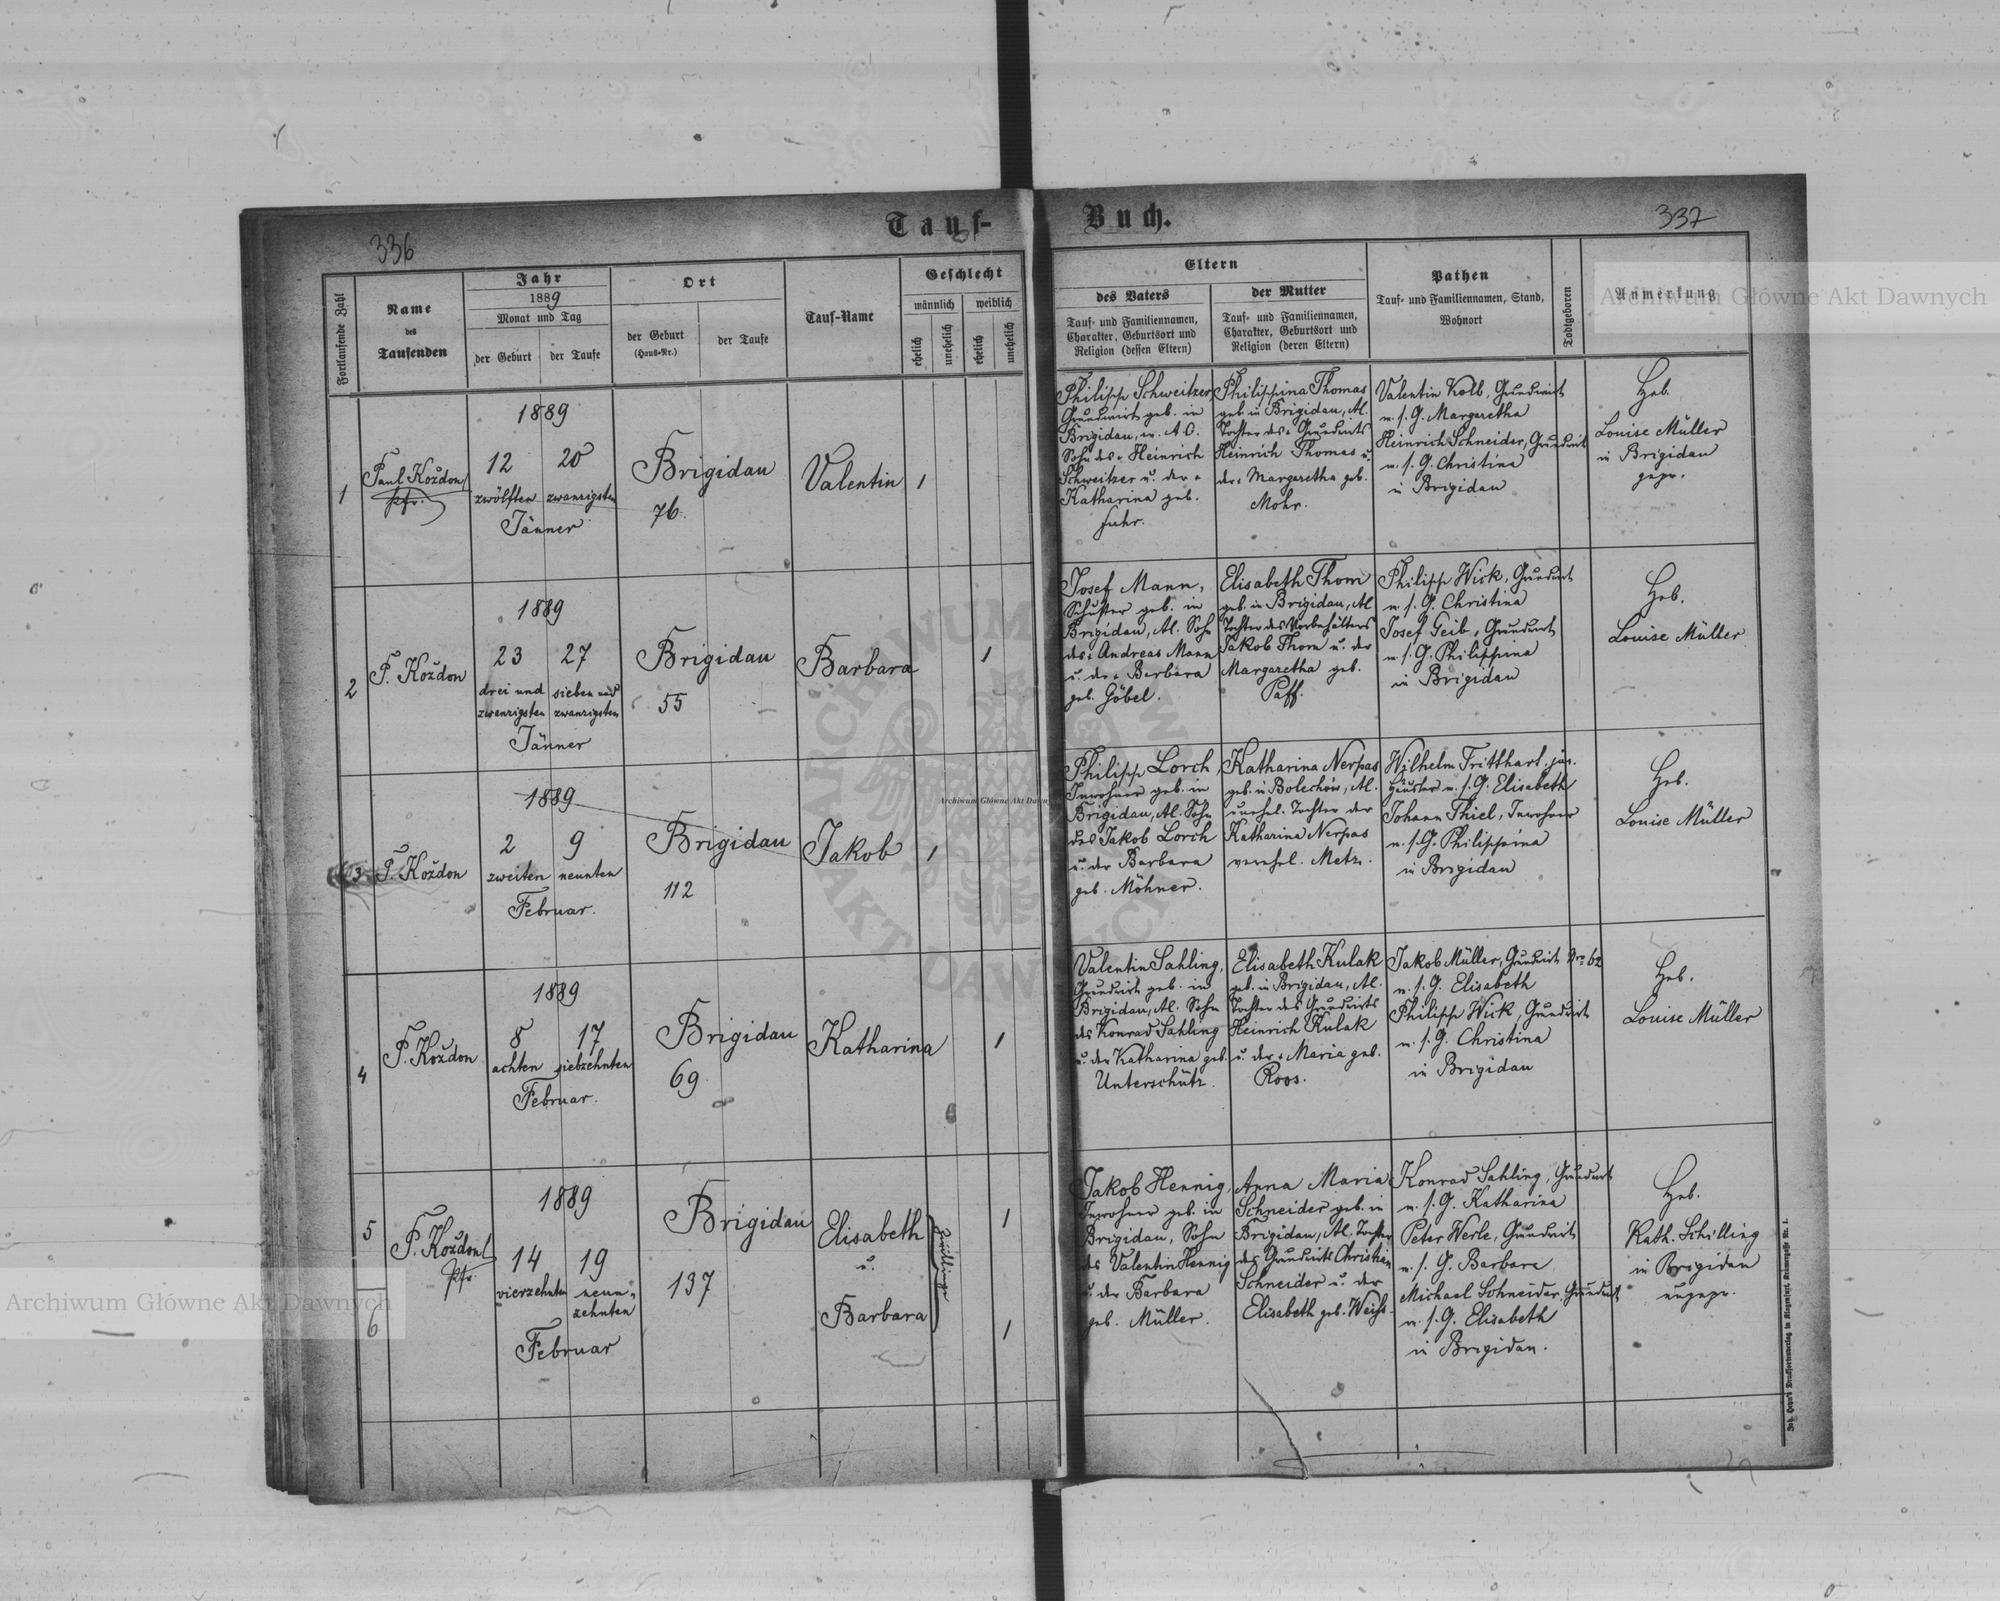 336
Tauf-
Fortlaufende Zahl
Name
des
Taufenden
Jahr
1889
Monat und Tag
der Geburt
der Taufe
Ort
der Geburt
(Haus-Nr.)
der Taufe
Tauf-Name
Geschlecht
männlich
weiblich
ehelich
unehelich
ehelich
unehelich
1
Paul Koždon
pfr.
1889
12
20
zwölften
zwanzigsten
Jänner
Brigidau
76.
Valentin
1
2
P. Koždon
1889
23
27
drei und
zwanzigsten
sieben und
zwanzigsten
Jänner
Brigidau
55
Barbara
1
3
P. Koždon
1889
2
9
zweiten
neunten
Februar.
Brigidau
112
Jakob
1
4
P. Koždon
1889
8
17
achten
siebzehnten
Februar.
Brigidau
69
Katharina
1
5
6
P. Koždon
pfr.
1889
14
19
vierzehnten
neun-
zehnten
Februar
Brigidau
137
Elisabeth
u.
Barbara
Zwillinge
1
1
Buch.
337
Eltern
des Vaters
Tauf- und Familiennamen,
Charakter, Geburtsort und
Religion (dessen Eltern)
der Mutter
Tauf- und Familiennamen,
Charakter, Geburtsort und
Religion (deren Eltern)
Pathen
Tauf- und Familiennamen, Stand,
Wohnort
Todtgeboren
Anmerkung
Philipp Schweitzer,
Grundwirt geb. in
Brigidau, w. A. O.
Sohn des Heinrich
Schweitzer u. der
Katharina geb.
Fuhr.
Philippina Thomas
geb. in Brigidau, Al.
Tochter des Grundwirts
Heinrich Thomas u.
der Margaretha geb.
Mohr.
Valentin Kolb, Grundwirt
u. s. G. Margaretha
Heinrich Schneider, Grundwirt
u. s. G. Christina
in Brigidau
Heb.
Louise Müller
in Brigidau
gepr.
Josef Mann,
Schuster geb. in
Brigidau, Al. Sohn
des Andreas Mann
u. der Barbara
geb. Göbel.
Elisabeth Thom
geb. in Brigidau, Al
Tochter des Vorbehälters
Jakob Thom u. der
Margaretha geb.
Paff.
Philipp Wick, Grundwirt
u. s. G. Christina
Josef Geib, Grundwirt
u. s. G. Philippina
in Brigidau
Heb.
Louise Müller
Philipp Lorch,
Inwohner geb. in
Brigidau, Al. Sohn
des Jakob Lorch
u. der Barbara
geb. Möhner.
Katharina Nerpas
geb. in Bolechów, Al.
unehel. Tochter der
Katharina Nerpas
verehel. Metz.
Wilhelm Tritthart jun.
Häusler u. s. G. Elisabeth
Johann Thiel, Inwohner
u. s. G. Philippina
in Brigidau
Heb.
Louise Müller
Valentin Sahling,
Grundwirt geb. in
Brigidau, Al. Sohn
des Konrad Sahling
u. der Katharina geb.
Unterschütz.
Elisabeth Kulak
geb. in Brigidau, Al.
Tochter des Grundwirts
Heinrich Kulak
u. der Maria geb.
Roos.
Jakob Müller, Grundwirt Nro 62
u. s. G. Elisabeth
Philipp Wick, Grundwirt
u. s. G. Christina
in Brigidau
Heb.
Louise Müller
Jakob Hennig,
Inwohner geb. in
Brigidau, Sohn
des Valentin Hennig
u. der Barbara
geb. Müller.
Anna Maria
Schneider geb. in
Brigidau, Al. Tochter
des Grundwirts Christian
Schneider u. der
Elisabeth geb. Weiss.
Konrad Sahling, Grundwirt
u. s. G. Katharina
Peter Werle, Grundwirt
u. s. G. Barbara
Michael Schneider, Grundwirt
u. s. G. Elisabeth
in Brigidau.
Heb.
Kath. Schilling
in Brigidau
ungepr.
Archiwum Główne Akt Dawnych
Archiwum Główne Akt Dawnych
ARCHIWUM
AKT DAWNYCH